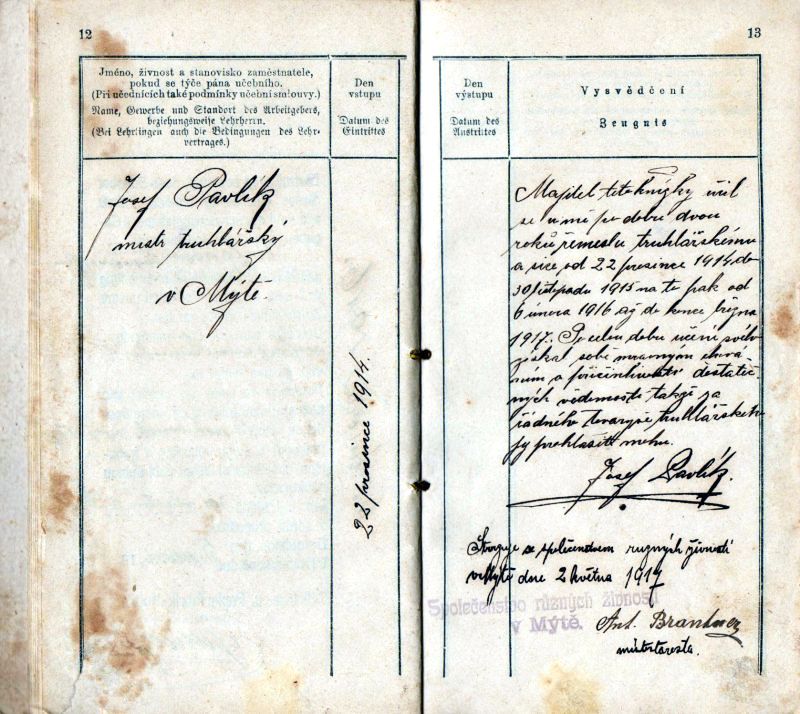 12
Jméno, živnost a stanovisko zaměstnatele,
pokud se týče pána učebního.
(Při učednících také podmínky učební smlouvy.)
Name, Gewerbe und Standort des Arbeitgebers,
beziehungsweise Lehrherrn.
(Bei Lehrlingen auch die Bedingungen des Lehr-
vertrages.)
Den
vstupu
Datum des
Eintrittes
Josef Pavlík
mistr truhlářský
v Mýtě
22 prosince 1914.
13
Den
výstupu
Datum des
Austrittes
Vysvědčení
Zeugnis
Majitel této knížky učil
se u mě po dobu dvou
roků řemeslu truhlářskému
a sice od 22 prosince 1914 do
30 listopadu 1915 na to pak od
6 února 1916 až do konce března
1917. Po celou dobu učení svého
získal sobě mravným chová-
ním a přičinlivostí dostateč-
ných vědomostí takže za
řádného tovaryše truhlářského
jej prohlásiti mohu.
Josef Pavlík.
Stvrzuje se společenstvem různých živností
v Mýtě dne 2 května 1917
Společenstvo různých živností
v Mýtě.
Ant. Brandner
místostarosta.